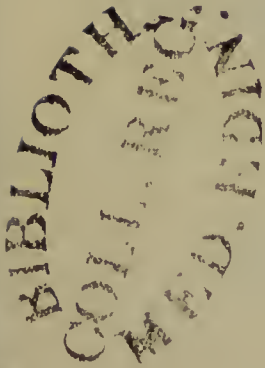 BIBLIOTH.
COLL. REG.
MED. EDIN.